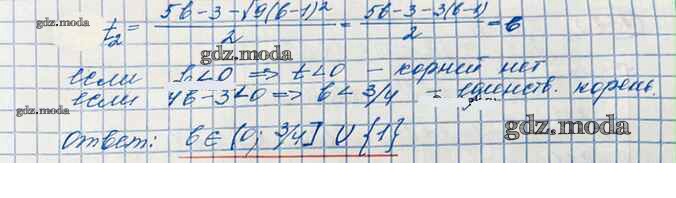 t₂ = (5b-3-√9(b-1)²)/2 = (5b-3-3(b-1))/2 = b
gdz.moda gdz.moda
если b<0 => t<0 - корней нет
gdz.moda
если 4b-3<0 => b<3/4 = единств. корень.
gdz.moda
Ответ: b∈[0; 3/4] ∪ {1}
gdz.moda